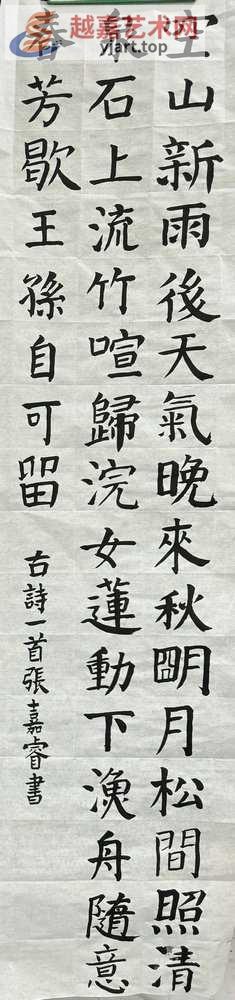 越嘉艺术网
yjart.top
空山新雨後天氣晚來秋朙月松間照清
泉石上流竹喧歸浣女蓮動下漁舟隨意
春芳歇王孫自可留
古詩一首張嘉睿書